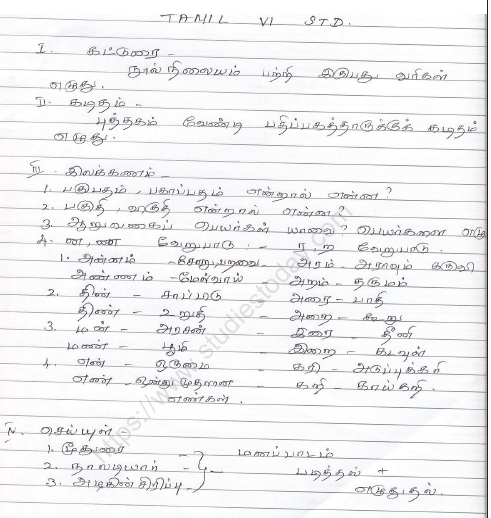 TAMIL VI STD.
I. கட்டுரை -
நூல் நிலையம் பற்றி இருபது வரிகள்
எழுது.
II. கடிதம் -
புத்தகம் வேண்டி பதிப்பகத்தாருக்குக் கடிதம்
எழுது.
III. இலக்கணம் -
1. பகுபதம், பகாப்பதம் என்றால் என்ன?
2. பகுதி, விகுதி என்றால் என்ன?
3. ஆறுவகைப் பெயர்கள் யாவை? பெயர்களை எழு
4. ன, ண வேறுபாடு - ர ற வேறுபாடு.
1. அன்னம் - சோறு, பறவை - அரம் - அராவும் கருவி
அண்ணம் - மேல்வாய் அறம் - தருமம்
2. தின் - சாப்பிடு அரை - பாதி
திண் - உறுதி - அறை - கூறு
3. மன் - அரசன் - இரை - தீனி
மண் - பூமி - இறை - கடவுள்
4. என் - ஒருமை - கரி - அடுப்புக்கரி
எண் - ஒன்று முதலான - கறி - காய்கறி.
எண்கள்.
IV. செய்யுள்
1. மூதுரை - மனப்பாடம்
2. நாலடியார் - படித்தல் +
3. அடிகள் சிரிப்பு - எழுதுதல்.
https://www.studiestoday.com